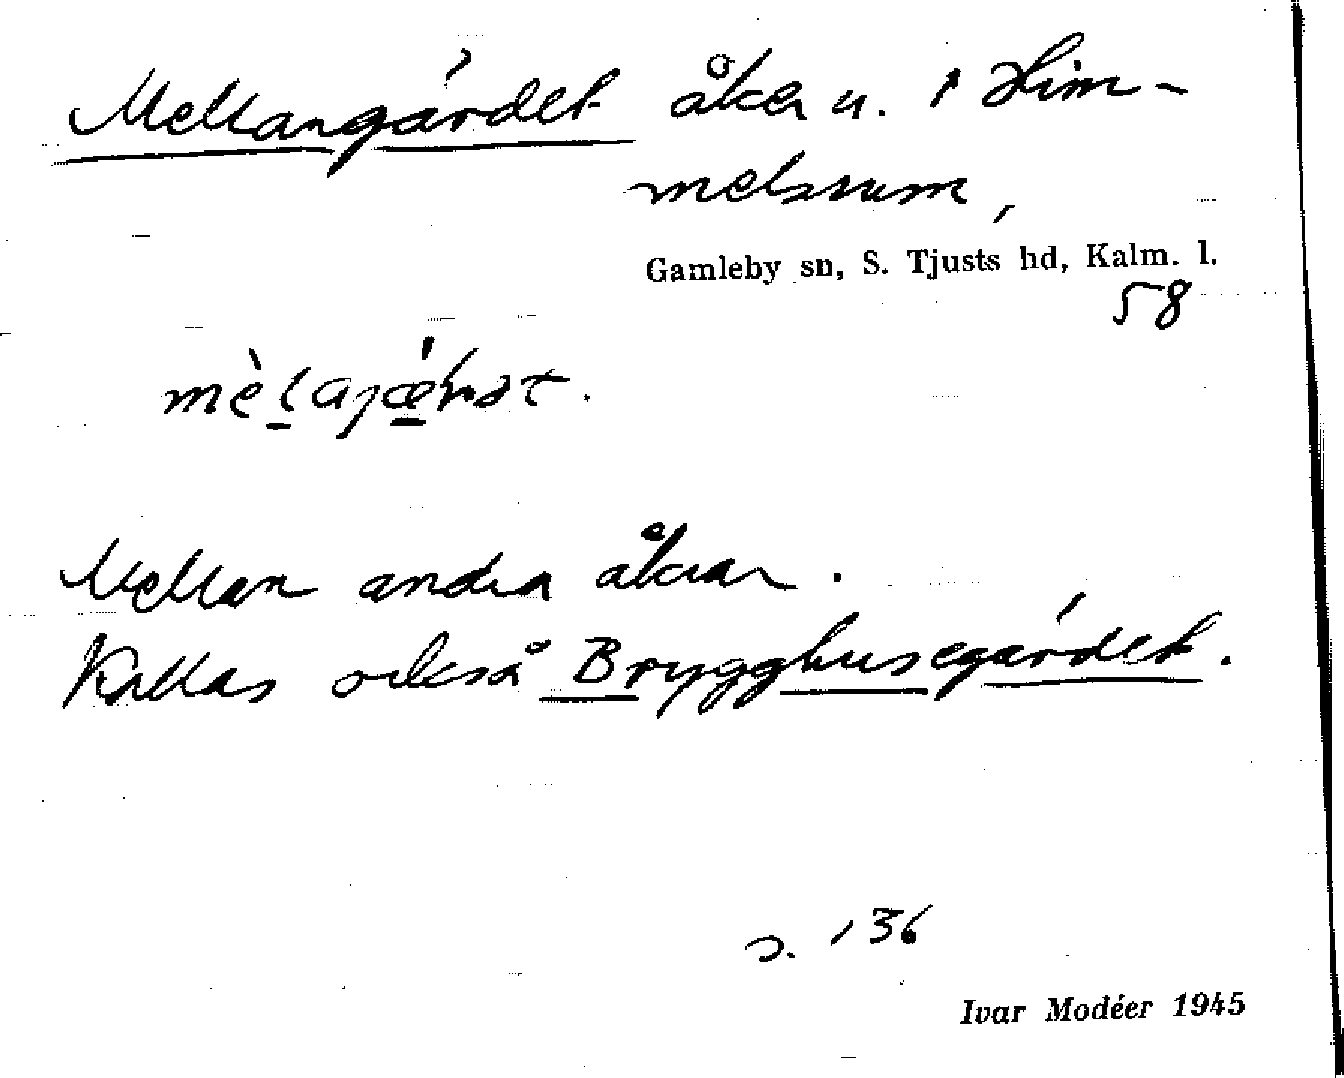 Mellangärdet åker u. 1 Him-
melsrum,
Gamleby sn, S. Tjusts hd, Kalm. l.
58
Mellan andra åkrar.
Kallas också Brygghusegärdet.
s. 136
Ivar Modéer 1945